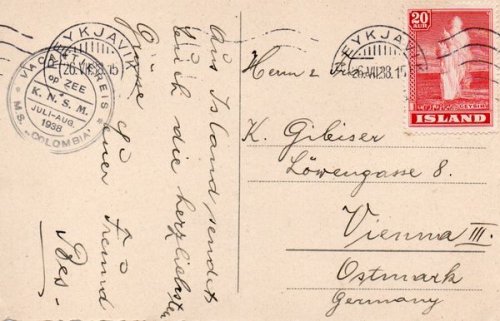 VACANTIEREIS
OP ZEE
K.N.S.M.
JULI-AUG.
1938
M.S. „COLOMBIA”
REYKJAVIK
26.VII.38.15
REYKJAVIK
26.VII.38.15
20
AUR
GEYSIR
ISLAND
Aus Island sendet
Euch die herzlichsten
Grüsse
Euer Freund
Herrn &
K. Gibiser
Löwengasse 8.
Vienna III.
Ostmark
Germany